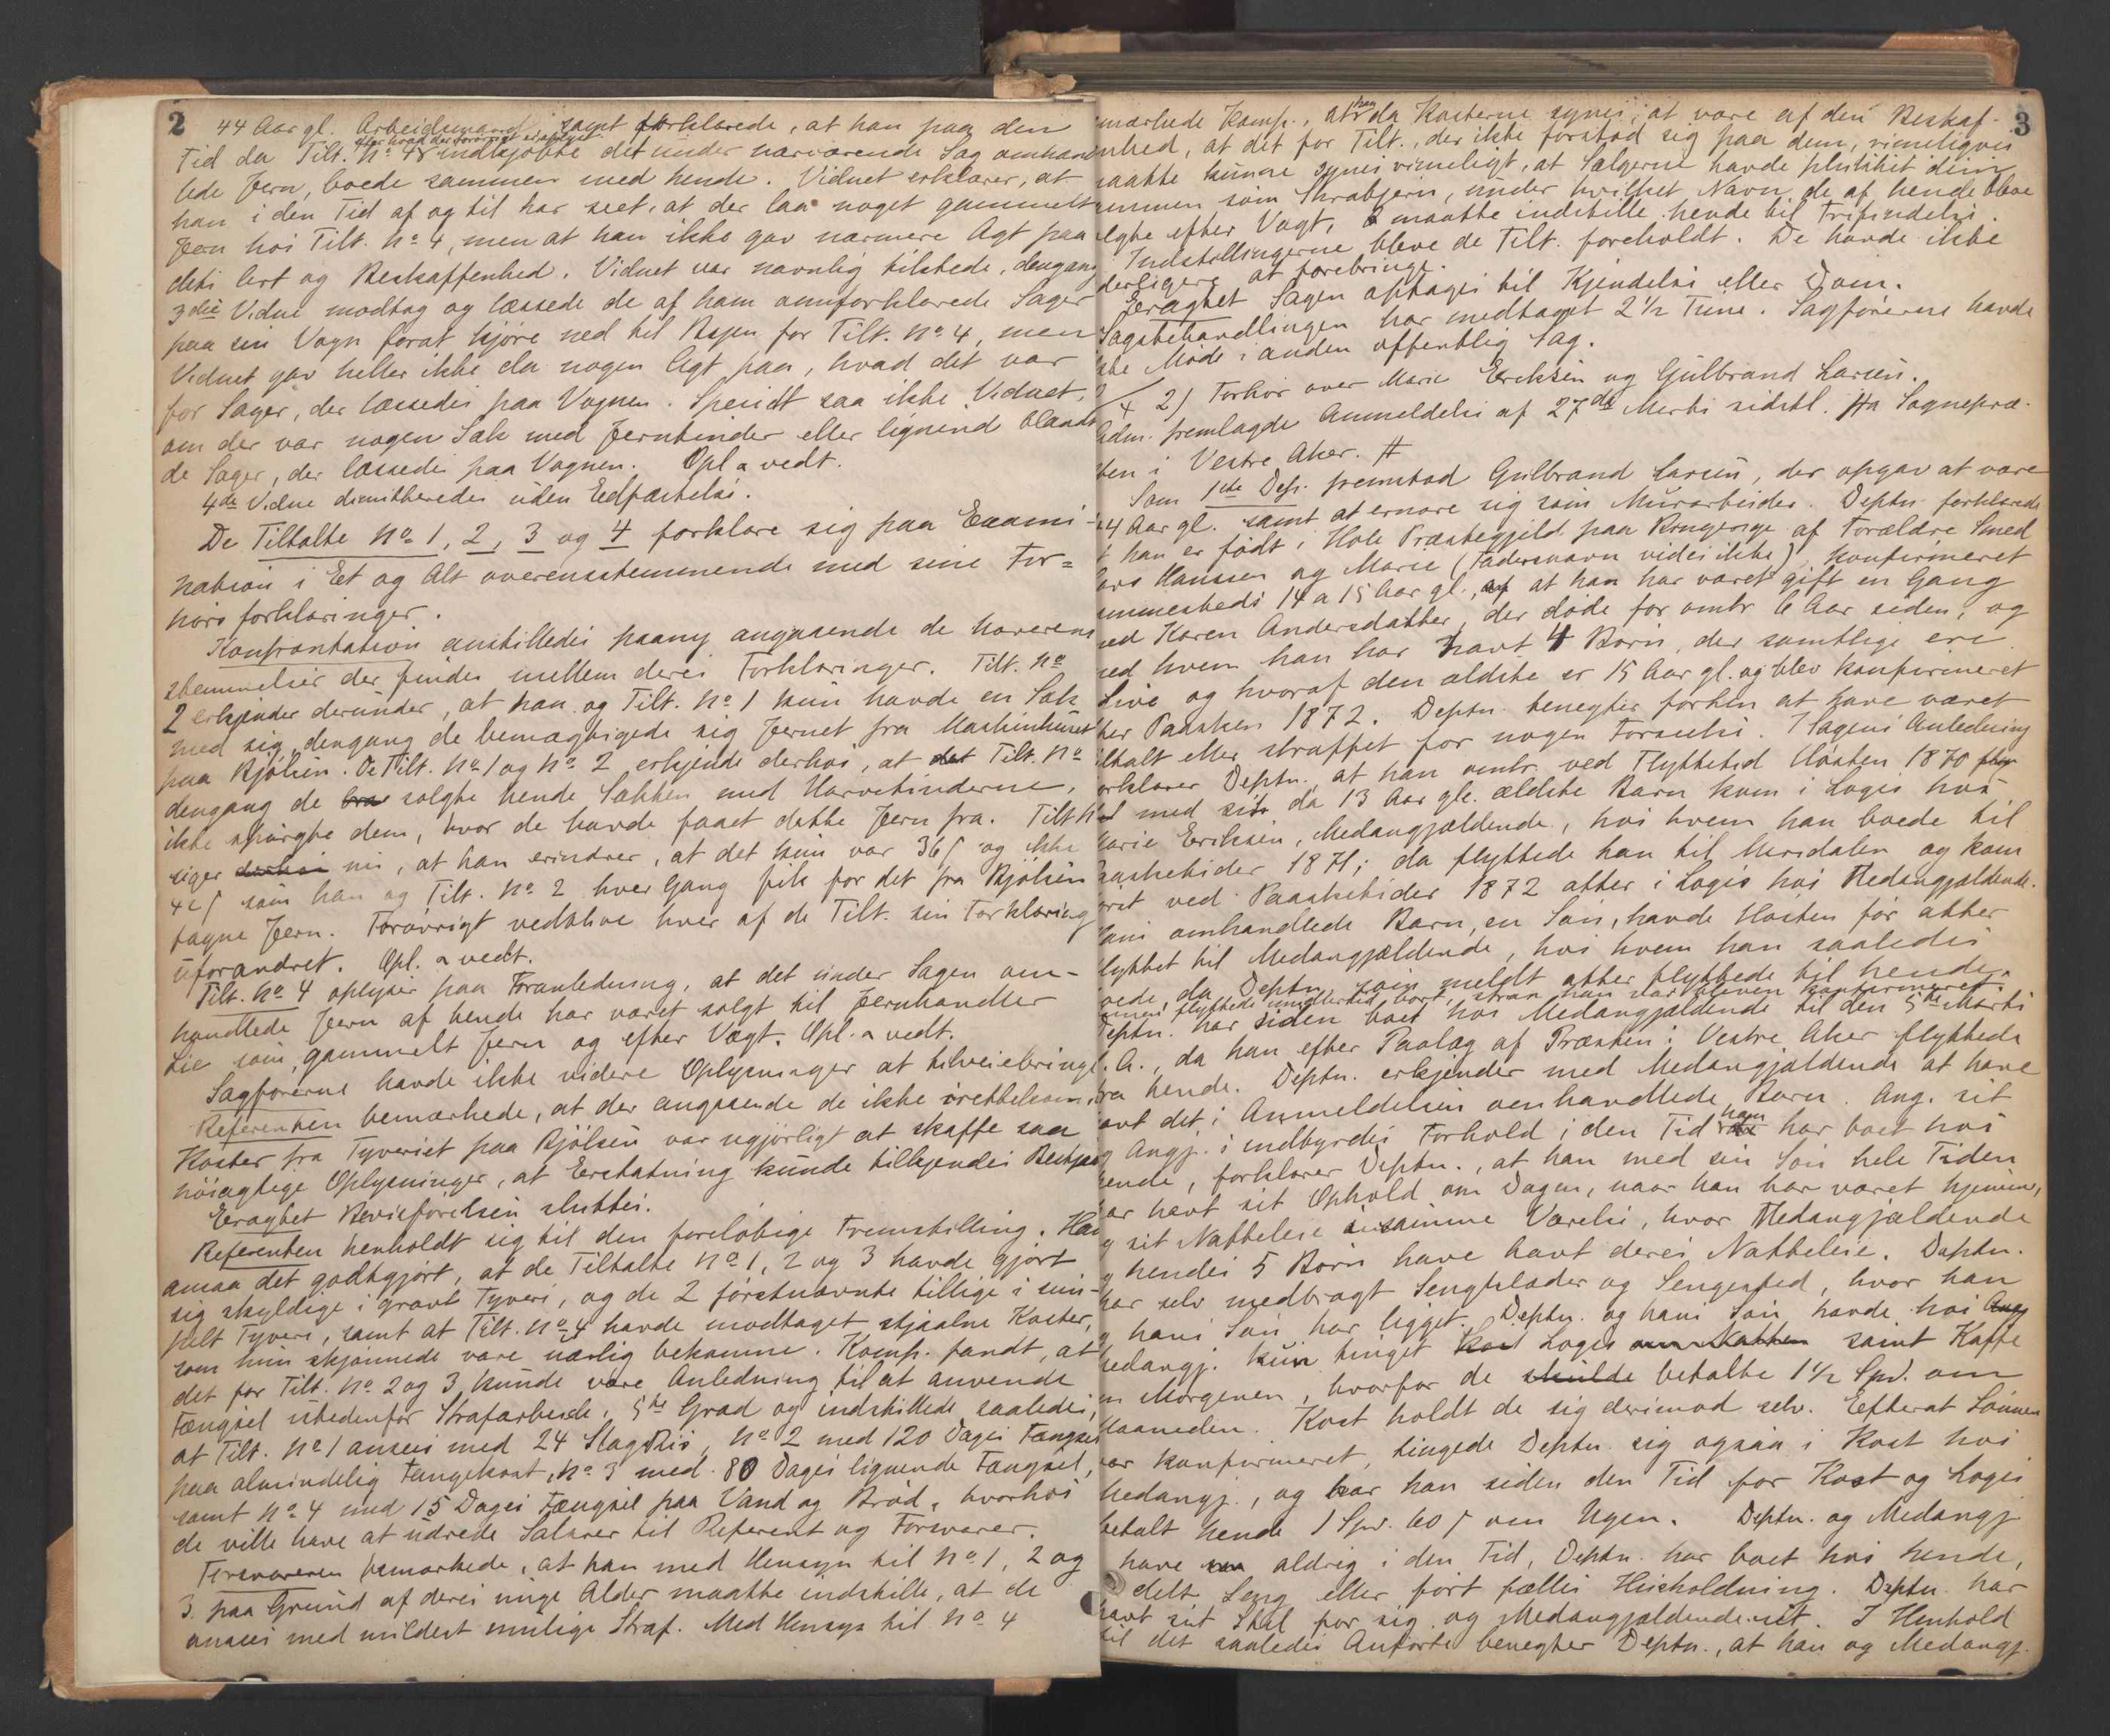 2
44 Aar gl. Arbeidsmand samt forklarede, at han paa den
efter hvad der forøvrigt er oplyst
Tid da Tilt. No 4 indkjøbte det under nærværende Sag omhand
lede Jern, boede sammen med hende. Vidnet erklærer, at
han i den Tid af og til har seet, at der laa noget gammelt
Jern hos Tilt. No 4, men at han ikke gav nærmere Agt paa
dets Art og Beskaffenhed. Vidnet var navnlig tilstede, dengang
3die Vidne modtog og læssede de af ham omforklarede Sager
paa sin Vogn forat kjøre ned til Byen for Tilt. No 4, men
Vidnet gav heller ikke da nogen Agt paa, hvad det var
for Sager, der læssedes paa Vognen. Specielt saa ikke Vidnet,
om der var nogen Sæk med Jerntinder eller lignend blandt
de Sager, der læssedes paa Vognen. Opl. & vedt.
4de Vidne dimitteredes uden Eedfæstelse.
De Tiltalte No 1, 2, 3 og 4 forklare sig paa Exami-
nation i Et og Alt overensstemmende med sine For=
hørsforklaringer.
Konfrontation anstilledes paany angaaende de Uoverens
stemmelser der findes mellem deres Forklaringer. Tilt. No
2 erkjender derunder, at han og Tilt. No 1 kun havde en Sæk
med sig, dengang de bemægtigede sig Jernet fra Maskinhuset
paa Bjølsen. De Tilt. No 1 og No 2 erkjende derhos, at det Tilt. No
dengang de solgte hende Sækken med Harvetinderne,
ikke spurgte dem, hvor de havde faaet dette Jern fra. Tilt N
siger derhos nu, at han erindrer, at det kun var 36 s og ikke
42 s som han og Tilt. No 2 hver Gang fik for det fra Bjølsen
tagne Jern. Forøvrigt vedblive hver af de Tilt. sin Forklaring
uforandret. Opl. & vedt.
Tilt. No 4 oplyser paa Foranledning, at det under Sagen om-
handlede Jern af hende har været solgt til Jernhandler
Lie som gammelt Jern og efter Vægt. Opl. & vedt.
Sagførerne havde ikke videre Oplysninger at tilveiebringe
Referenten bemærkede, at der angaaende de ikke irettekomne
Koster fra Tyveriet paa Bjølsen var ugjørligt at skaffe saa
nøiagtige Oplysninger, at Erstatning kunde tilkjendes Bestjaa
Eragtet Bevisførelsen sluttes.
Referenten henholdt sig til den foreløbige Fremstilling. Han
ansaa det godtgjort, at de Tiltalte No 1, 2 og 3 havde gjort
sig skyldige i grovt Tyveri, og de 2 førstnævnte tillige i sim-
pelt Tyveri, samt at Tilt. No 4 havde modtaget stjaalne Koster,
som hun skjønnede vare uærlig bekomne. Komp. fandt, at
det for Tilt. No 2 og 3 kunde være Anledning til at anvende
Fængsel istedenfor Strafarbeide i 5te Grad og indstillede saaledes,
at Tilt. No 1 ansees med 24 Slag Ris, No 2 med 120 Dages Fængsel
paa almindelig Fangekost, No 3 med 80 Dages lignende Fængsel,
samt No 4 med 15 Dages Fængsel paa Vand og Brød, hvorhos
de ville have at udrede Salærer til Referent og Forsvarer.
Forsvareren bemærkede, at han med Hensyn til No 1, 2 og
3 paa Grund af deres unge Alder maatte indstille, at de
ansees med mildest mulige Straf. Med Hensyn til No 4
3
mærkede Komp., at han da Kosterne synes at være af den Beskaf-
enhed, at det for Tilt., der ikke forstod sig paa dem, rimeligvis
maatte kunne synes rimeligt, at Sælgerne havde plukket dem
ammen som Skrabjern, under hvilket Navn de af hende bleve
olgte efter Vægt, maatte indstille hende til Frifindelse.
Indstillingerne bleve de Tilt. foreholdt. De havde ikke
derligere at forebringe.
Eragtet Sagen optages til Kjendelse eller Dom.
Sagsbehandlingen har medtaget 2 1/2 Time. Sagførerne havde
kke Møde i anden offentlig Sag.
4 2) Forhør over Marie Eriksen og Gulbrand Larsen.
Adm. fremlagde Anmeldelse af 27de Marts sidstl. fra Sognepræ-
ten i Vestre Aker. #
Som 1ste Dep. fremstod Gulbrand Larsen, der opgav at være
44 Aar gl. samt at ernære sig som Murarbeider. Deptn. forklarede
t han er født i Hole Præstegjeld paa Ringerige af Forældre Smed
Lars Hanssen og Marie (Fadersnavn vides ikke), konfirmeret
ammesteds 14 a 15 Aar gl., at han har været gift en Gang
med Karen Andersdatter, der døde for omtr 6 Aar siden, og
med hvem han har havt 4 Børn, der samtlige ere
Live og hvoraf den ældste er 15 Aar gl. og blev konfirmeret
fter Paasken 1872. Deptn. benegter forhen at have været
iltalt eller straffet for nogen Forseelse. I Sagens Anledning
orklarer Deptn., at han omtr. ved Flyttetid Høsten 1870 flyt
ed med sit da 13 Aar gle. ældste Barn kom i Logis hos
Marie Eriksen, Medangjældende, hos hvem han boede til
Paasketider 1871; da flyttede han til Maridalen og kom
ørst ved Paasketider 1872 atter i Logis hos Medangjældende.
Hans omhandlede Barn, en Søn, havde Høsten før atter
flyttet til Medangjældende, hos hvem han saaledes
oede, da Deptn. som meldt atter flyttede til hende.
ønnen flyttede imidlertid bort, strax han var bleven konfirmeret.
Deptn. har siden boet hos Medangjældende til den 5te Marts
. A., da han efter Paalæg af Præsten i Vestre Aker flyttede
fra hende. Deptn. erkjender med Medangjældende at have
avt det i Anmeldelsen omhandlede Barn. Ang. sit
g Angj.s indbyrdes Forhold i den Tid han har boet hos
hende, forklarer Deptn., at han med sin Søn hele Tiden
ar havt sit Ophold om Dagen, naar han har været hjemme,
g sit Natteleie i samme Værelse, hvor Medangjældende
g hendes 5 Børn have havt deres Natteleie. Deptn.
har selv medbragt Sengklæder og Sengested, hvor han
g hans Søn har ligget. Deptn. og hans Søn havde hos Ang
Medangj. kun tinget Kost Logis samt Kaffe
m Morgenen, hvorfor de skulde betalte 1 1/2 Spd. om
Maaneden. Kost holdt de sig derimod selv. Efterat Sønnen
var konfirmeret, tingede Deptn. sig ogsaa i Kost hos
Medangj., og har han siden den Tid for Kost og Logis
betalt hende 1 Spd. 60 s om Ugen. Deptn. og Medangj
have aldrig i den Tid, Deptn. har boet hos hende,
delt Seng eller ført fælles Husholdning. Deptn. har
havt sit Stel for sig og Medangjældende sit. I Henhold
til det saaledes Anførte benegter Deptn., at han og Medangj.